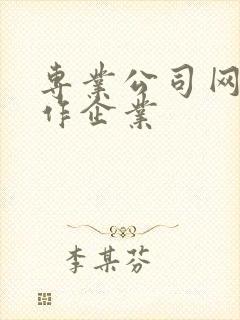 専業公司网
作企業
李某芬